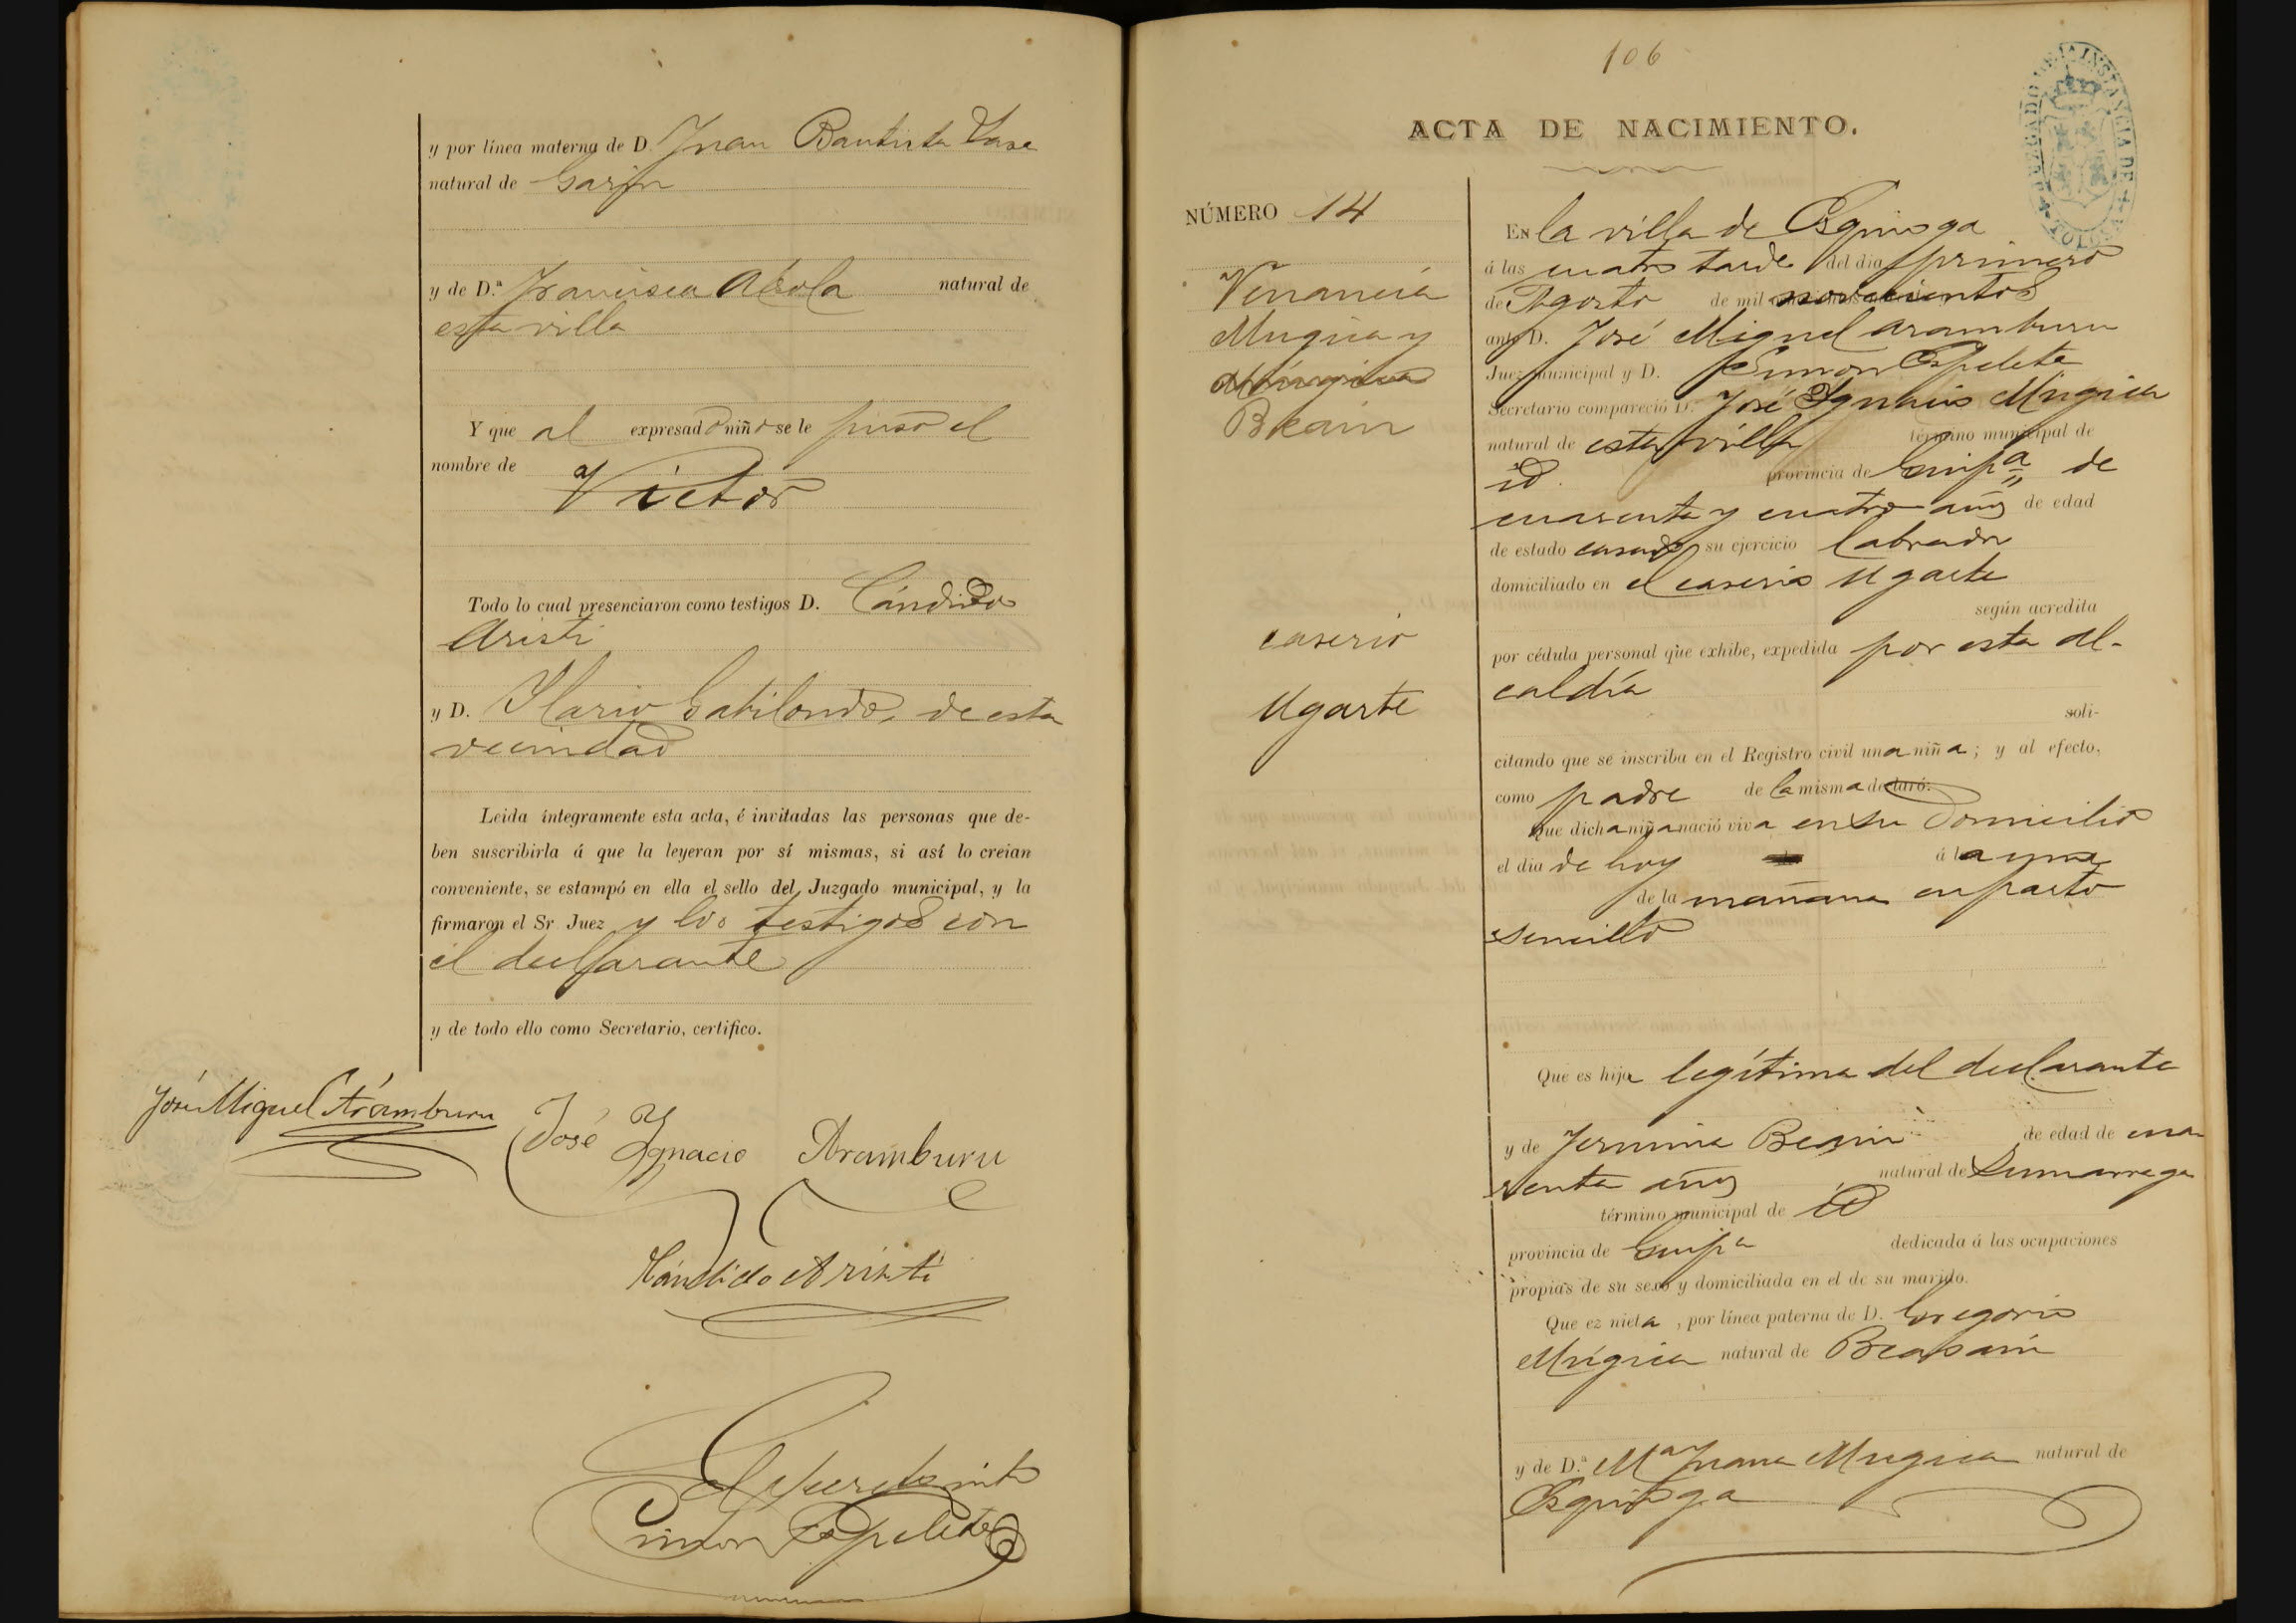 y por línea materna de D. Juan Bautista Lasa
natural de Garin
y de D.ª Francisca Alsola natural de
esta villa
Y que al expresado niño se le puso el
nombre de
Victor
Todo lo cual presenciaron como testigos D. Cándido
Aristi
y D. Ilario Gabilondo, de esta
vecindad
Leida íntegramente esta acta, é invitadas las personas que de-
ben suscribirla á que la leyeran por sí mismas, si así lo creian
conveniente, se estampó en ella el sello del Juzgado municipal, y la
firmaron el Sr Juez y los testigos con
el declarante
y de todo ello como Secretario, certifico.
José Miguel Aramburu
José Ignacio Aramburu
Cándido Aristi
Simon Espeleta
106
ACTA DE NACIMIENTO.
JUZGADO DE 1ª INSTANCIA DE TOLOSA
NÚMERO 14
Venancia
Mugica y
Beain
caserio
Ugarte
En la villa de Esquioga
á las cuatro tarde del dia primero
de Agosto de mil novecientos
ante D. José Miguel Aramburu
Juez municipal y D. Simon Espeleta
Secretario compareció D. José Ignacio Mugica
natural de esta villa término municipal de
id. provincia de Guipª de
cuarenta y cuatro años de edad
de estado casado su ejercicio labrador
domiciliado en el caserio Ugarte
según acredita
por cédula personal que exhibe, expedida por esta al-
caldía
soli-
citando que se inscriba en el Registro civil una niña; y al efecto,
como padre de la misma declaró:
Que dicha niña nació viva en su domicilio
el dia de hoy á la una
de la mañana en parto
sencillo
Que es hija legítima del declarante
y de Fermina Beain de edad de cua
renta años natural de Zumarraga
término municipal de id
provincia de Guipª dedicada á las ocupaciones
propias de su sexo y domiciliada en el de su marido.
Que ez nieta, por línea paterna de D. Gregorio
Múgica natural de Beasain
y de D.ª Mª Juana Mugica natural de
Esquioga